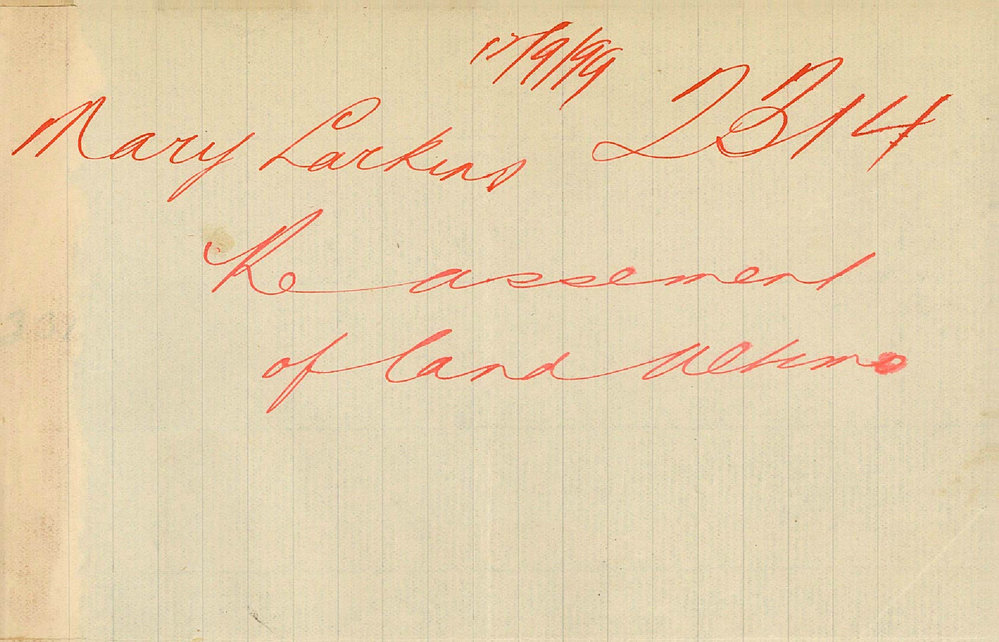 17/9/99
Mary Larkins 2314
Re assement
of land Ultimo